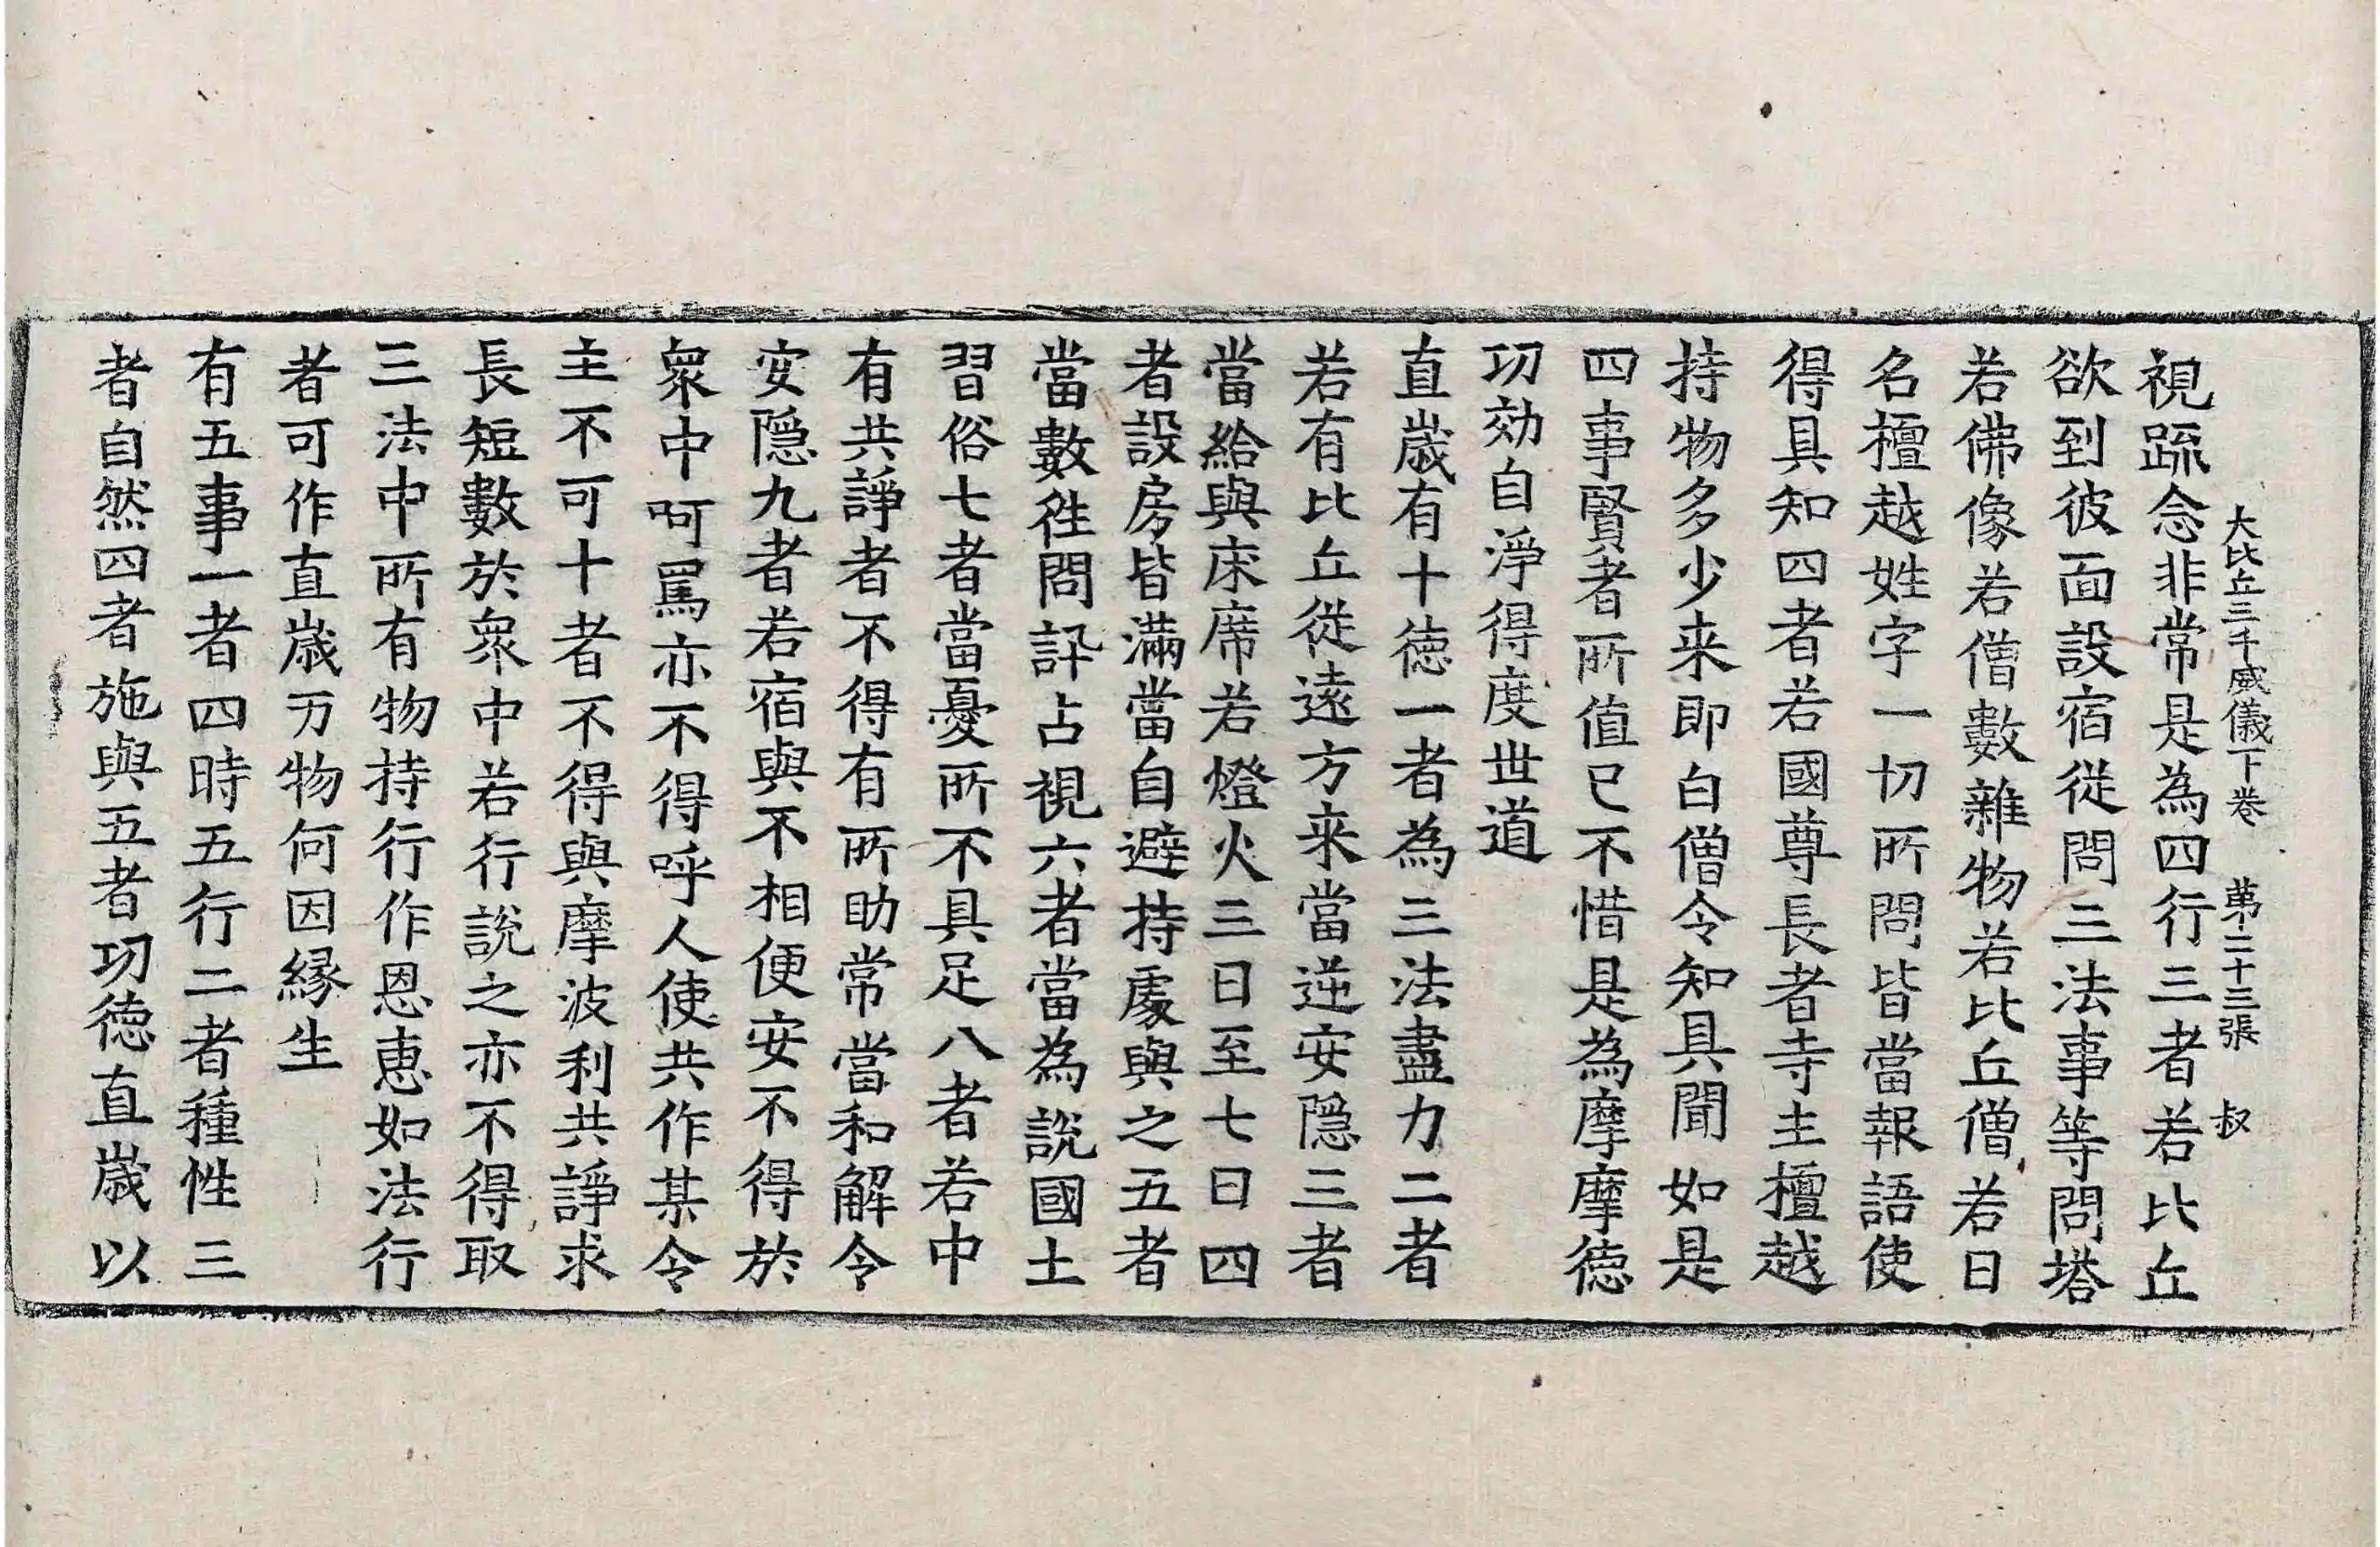 大比丘三千威儀下卷 第二十三張 叔
視疏念非常是為四行三者若比丘
欲到彼面設宿從問三法事等問塔
若佛像若僧數雜物若比丘僧若日
名檀越姓字一切所問皆當報語使
得具知四者若國尊長者寺主檀越
持物多少来即白僧令知具聞如是
四事賢者所值已不惜是為摩摩徳
功効自淨得度世道
直歲有十徳一者為三法盡力二者
若有比丘從遠方来當逆安隱三者
當給與床席若燈火三日至七日四
者設房皆滿當自避持處與之五者
當數徃問訊占視六者當為說國土
習俗七者當憂所不具足八者若中
有共諍者不得有所助常當和解令
安隱九者若宿與不相便安不得於
眾中呵罵亦不得呼人使共作某令
主不可十者不得與摩波利共諍求
長短數於眾中若行說之亦不得取
三法中所有物持行作恩惠如法行
者可作直歲万物何因緣生
有五事一者四時五行二者種性三
者自然四者施與五者功徳直歲以